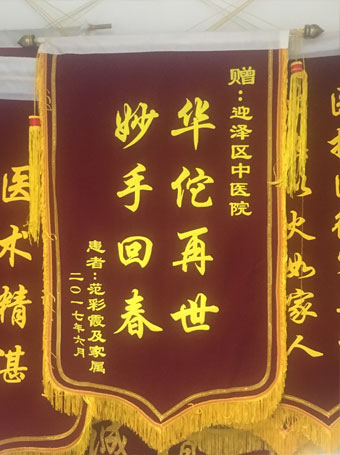 赠：迎泽区中医院
华佗再世
妙手回春
患者：范彩霞及家属
二〇一七年六月
医术精甚
火如家人